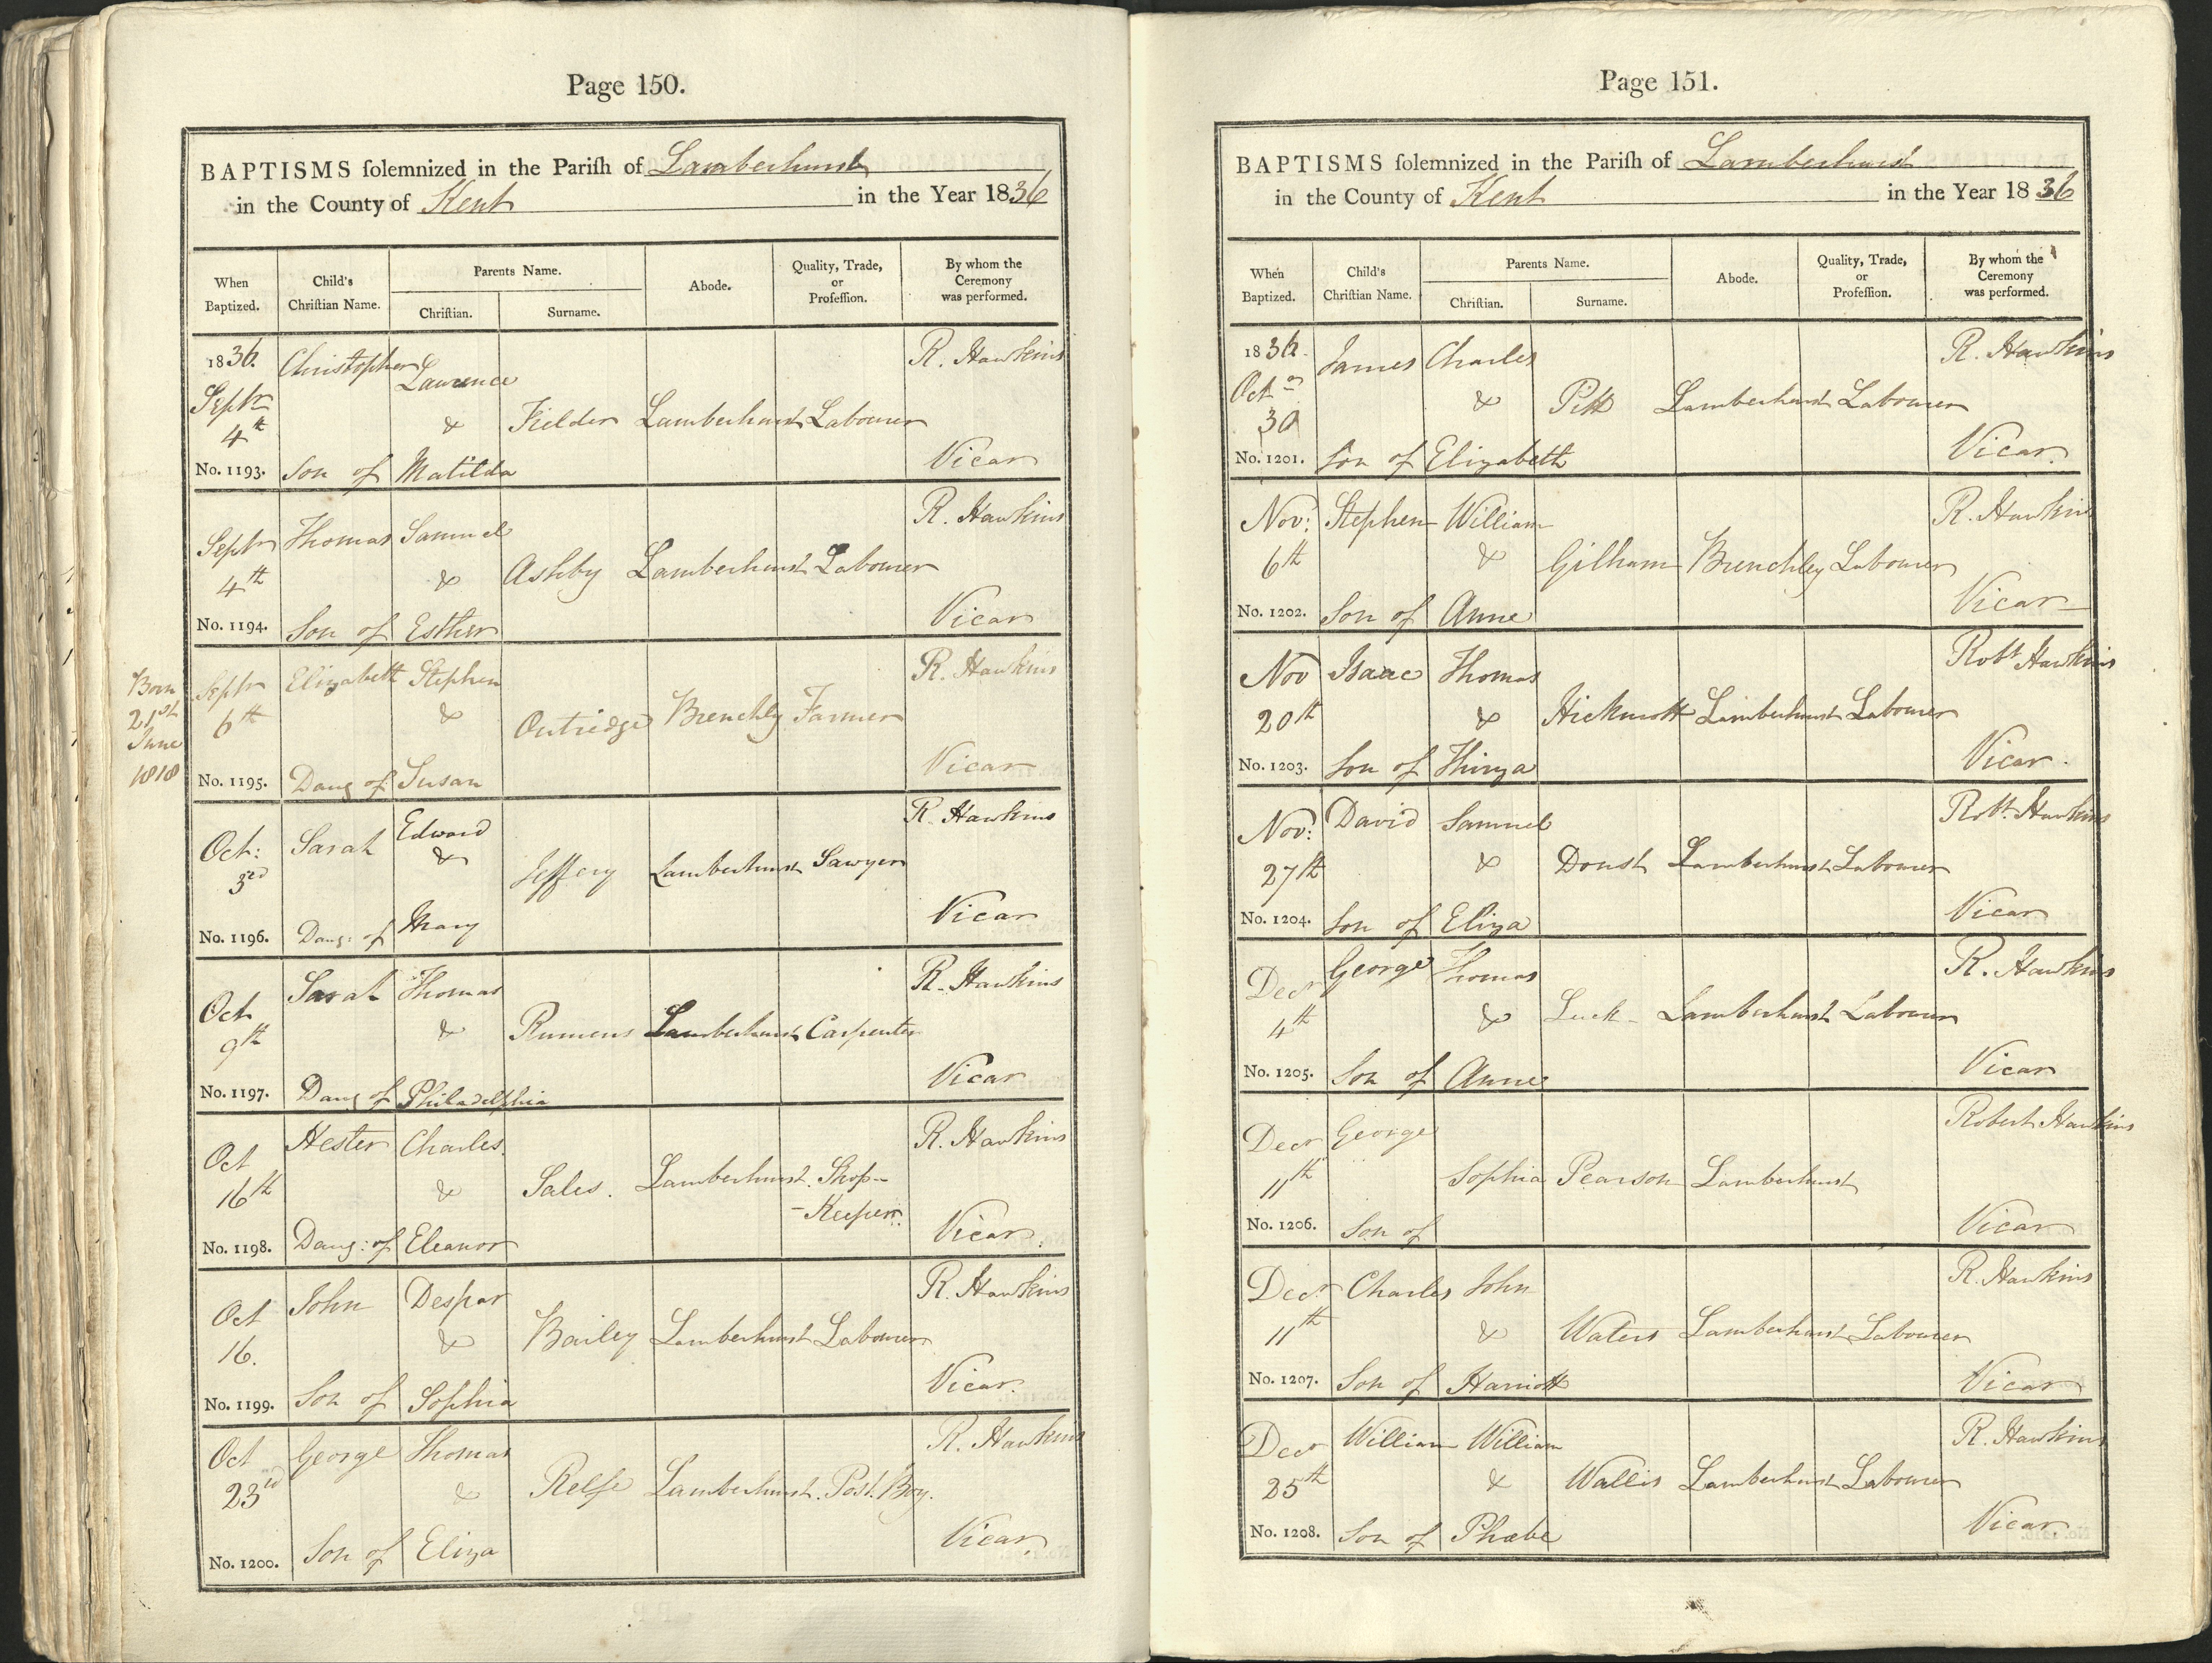 Page 150.
BAPTISMS ſolemnized in the Pariſh of Lamberhurst
in the County of Kent in the Year 1836
When Baptized.
Child's Chriſtian Name.
Parents Name.
Chriſtian.
Surname.
Abode.
Quality, Trade, or Profeſſion.
By whom the Ceremony was performed.
1836. Christopher Lawrence R. Hawkins
Septr 4th & Fielder Lamberhurst Labourer
No. 1193. Son of Matilda Vicar
Septr Thomas Samuel R. Hawkins
4th & Ashby Lamberhurst Labourer
No. 1194. Son of Esther Vicar
Born 21st June 1818
Septr Elizabeth Stephen R. Hawkins
6th & Outridge Brenchly Farmer
No. 1195. Daug of Susan Vicar
Oct: Sarah Edward R. Hawkins
3rd & Jeffery Lamberhurst Sawyer
No. 1196. Daug: of Mary Vicar
Oct Sarah Thomas R. Hawkins
9th & Rumens Lamberhurst Carpenter
No. 1197. Daug of Philadelphia Vicar
Oct Hester Charles. R. Hawkins
16th & Sales. Lamberhurst. Shop-
-Keeper.
No. 1198. Daug: of Eleanor Vicar.
Oct John Despar R. Hawkins
16. & Bailey Lamberhurst Labourer
No. 1199. Son of Sophia Vicar.
Oct George Thomas R. Hawkins
23rd & Relfe Lamberhurst. Post. Boy.
No. 1200. Son of Eliza Vicar.
Page 151.
BAPTISMS ſolemnized in the Pariſh of Lamberhurst
in the County of Kent in the Year 1836
When Baptized.
Child's Chriſtian Name.
Parents Name.
Chriſtian.
Surname.
Abode.
Quality, Trade, or Profeſſion.
By whom the Ceremony was performed.
1836. James Charles R. Hawkins
Octr 30 & Pitt Lamberhurst Labourer
No. 1201. Son of Elizabeth Vicar.
Nov: Stephen William R. Hawkins
6th & Gilham Brenchley Labourer
No. 1202. Son of Anne Vicar
Nov Isaac Thomas Robt Hawkins
20th & Hickmott Lamberhurst Labourer
No. 1203. Son of Thirza Vicar.
Nov: David Samuel Robt. Hawkins
27th & Doust Lamberhurst Labourer
No. 1204. Son of Eliza Vicar
Decr George Thomas R. Hawkins
4th & Luck - Lamberhurst Labourer
No. 1205. Son of Anne Vicar
Decr George Robert Hawkins
11th Sophia Pearson Lamberhurst
No. 1206. Son of Vicar
Decr. Charles John R. Hawkins
11th & Waters Lamberhurst Labourer
No. 1207. Son of Harriott Vicar
Decr William William R. Hawkins
25th & Wallis Lamberhurst Labourer
No. 1208. Son of Phœbe Vicar.